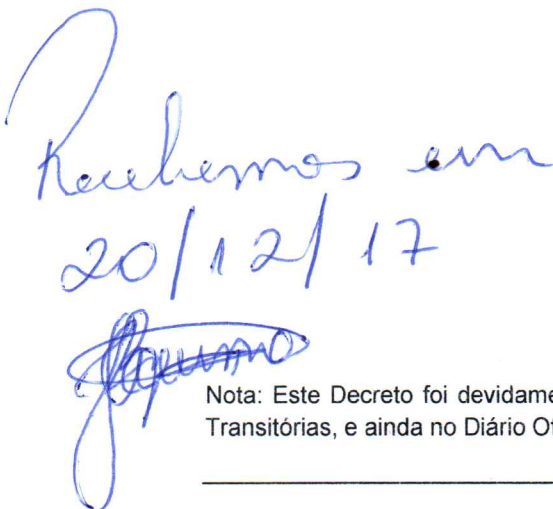 Recebemos em
20/12/17
Nota: Este Decreto foi devidame
Transitórias, e ainda no Diário Of